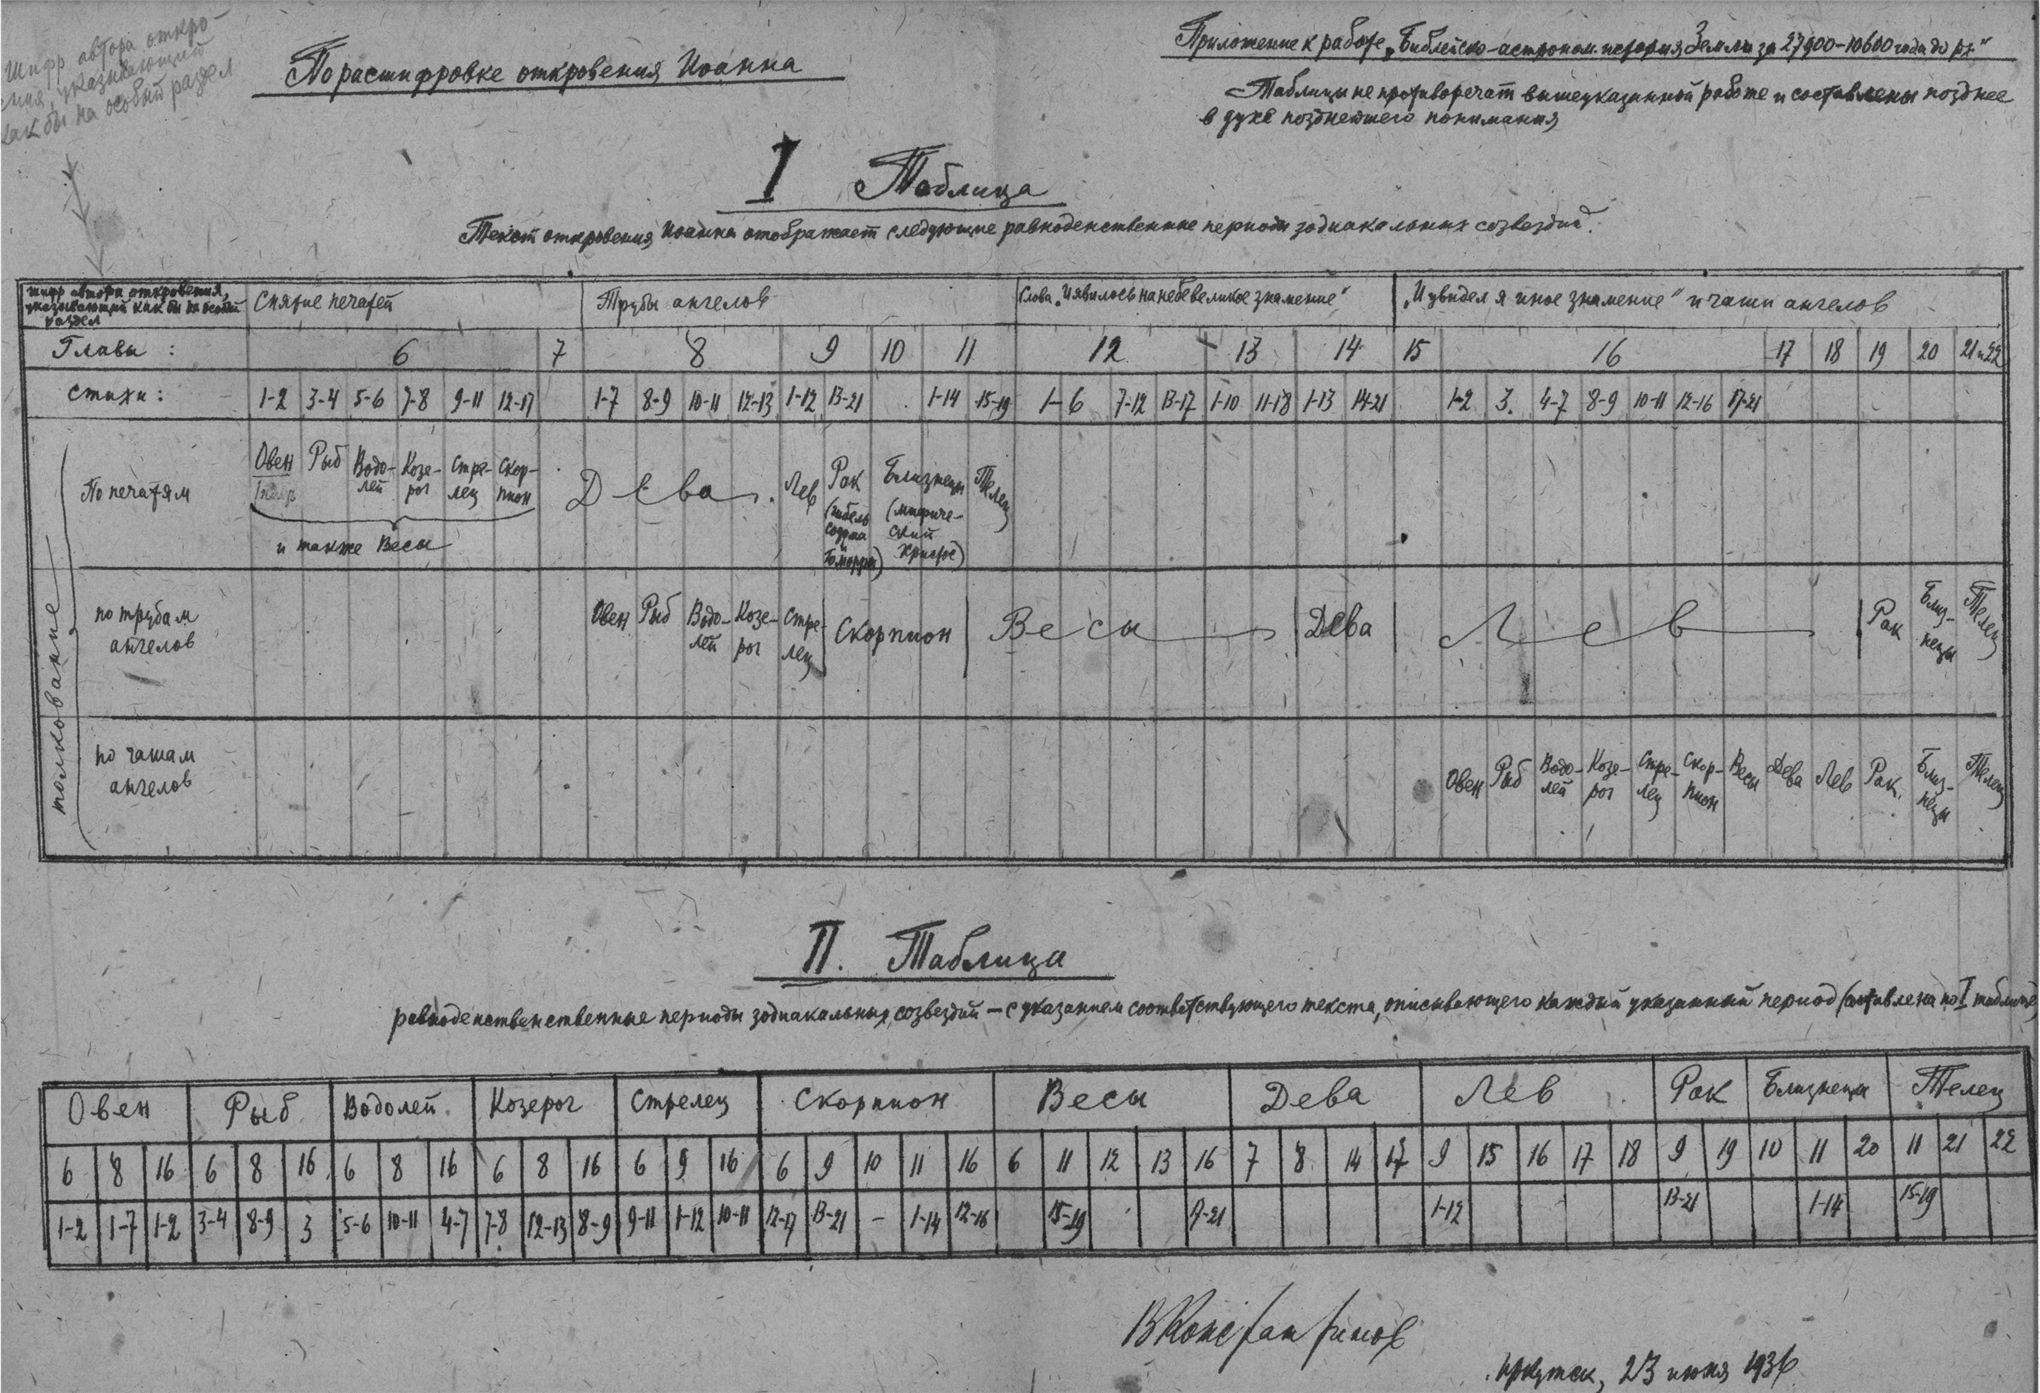 Шифр автора откро-
ения, указывающий
как бы на особый раздел
По расшифровке откровения Иоанна
Приложение к работе „Библейско-астроном. история Земли за 27900-10600 года до р.х.“
Таблицы не противоречат вышеуказанной работе и составлены позднее
в духе позднейшего понимания
I Таблица
Текст откровения Иоанна отображает следующие равноденственные периоды зодиакальных созвездий.
шифр автора откровения, указывающий как бы на особый раздел
Снятие печатей
Трубы ангелов
Слова „И явилось на небе великое знамение“
„И увидел я иное знамение“ и чаши ангелов
Главы: 6 7 8 9 10 11 12 13 14 15 16 17 18 19 20 21 и 22
стихи: 1-2 3-4 5-6 7-8 9-11 12-17 1-7 8-9 10-11 12-13 1-12 13-21 1-14 15-19 1-6 7-12 13-17 1-10 11-18 1-13 14-21 1-2 3. 4-7 8-9 10-11 12-16 17-21
толкование
По печатям
Овен Рыб Водо-лей Козе-рог Стре-лец Скор-пион
и также Весы
Дева Лев Рак (гибель содома и Гоморры) Близнецы (мифиче-ский Христос) Телец
по трубам ангелов
Овен Рыб Водо-лей Козе-рог Стре-лец Скорпион Весы Дева Лев Рак Близ-нецы Телец
по чашам ангелов
Овен Рыб Водо-лей Козе-рог Стре-лец Скор-пион Весы Дева Лев Рак. Близ-нецы Телец
II. Таблица
равноденственственные периоды зодиакальных созвездий — с указанием соответствующего текста, описывающего каждый указанный период (составлена по I таблице)
Овен Рыб Водолей Козерог Стрелец Скорпион Весы Дева Лев Рак Близнецы Телец
6 8 16 6 8 16 6 8 16 6 8 16 6 9 16 6 9 10 11 16 6 11 12 13 16 7 8 14 17 9 15 16 17 18 9 19 10 11 20 11 21 22
1-2 1-7 1-2 3-4 8-9 3 5-6 10-11 4-7 7-8 12-13 8-9 9-11 1-12 10-11 12-17 13-21 – 1-14 12-16 15-19 17-21 1-12 13-21 1-14 15-19
ВКонстантинов
Иркутск, 23 июня 1936